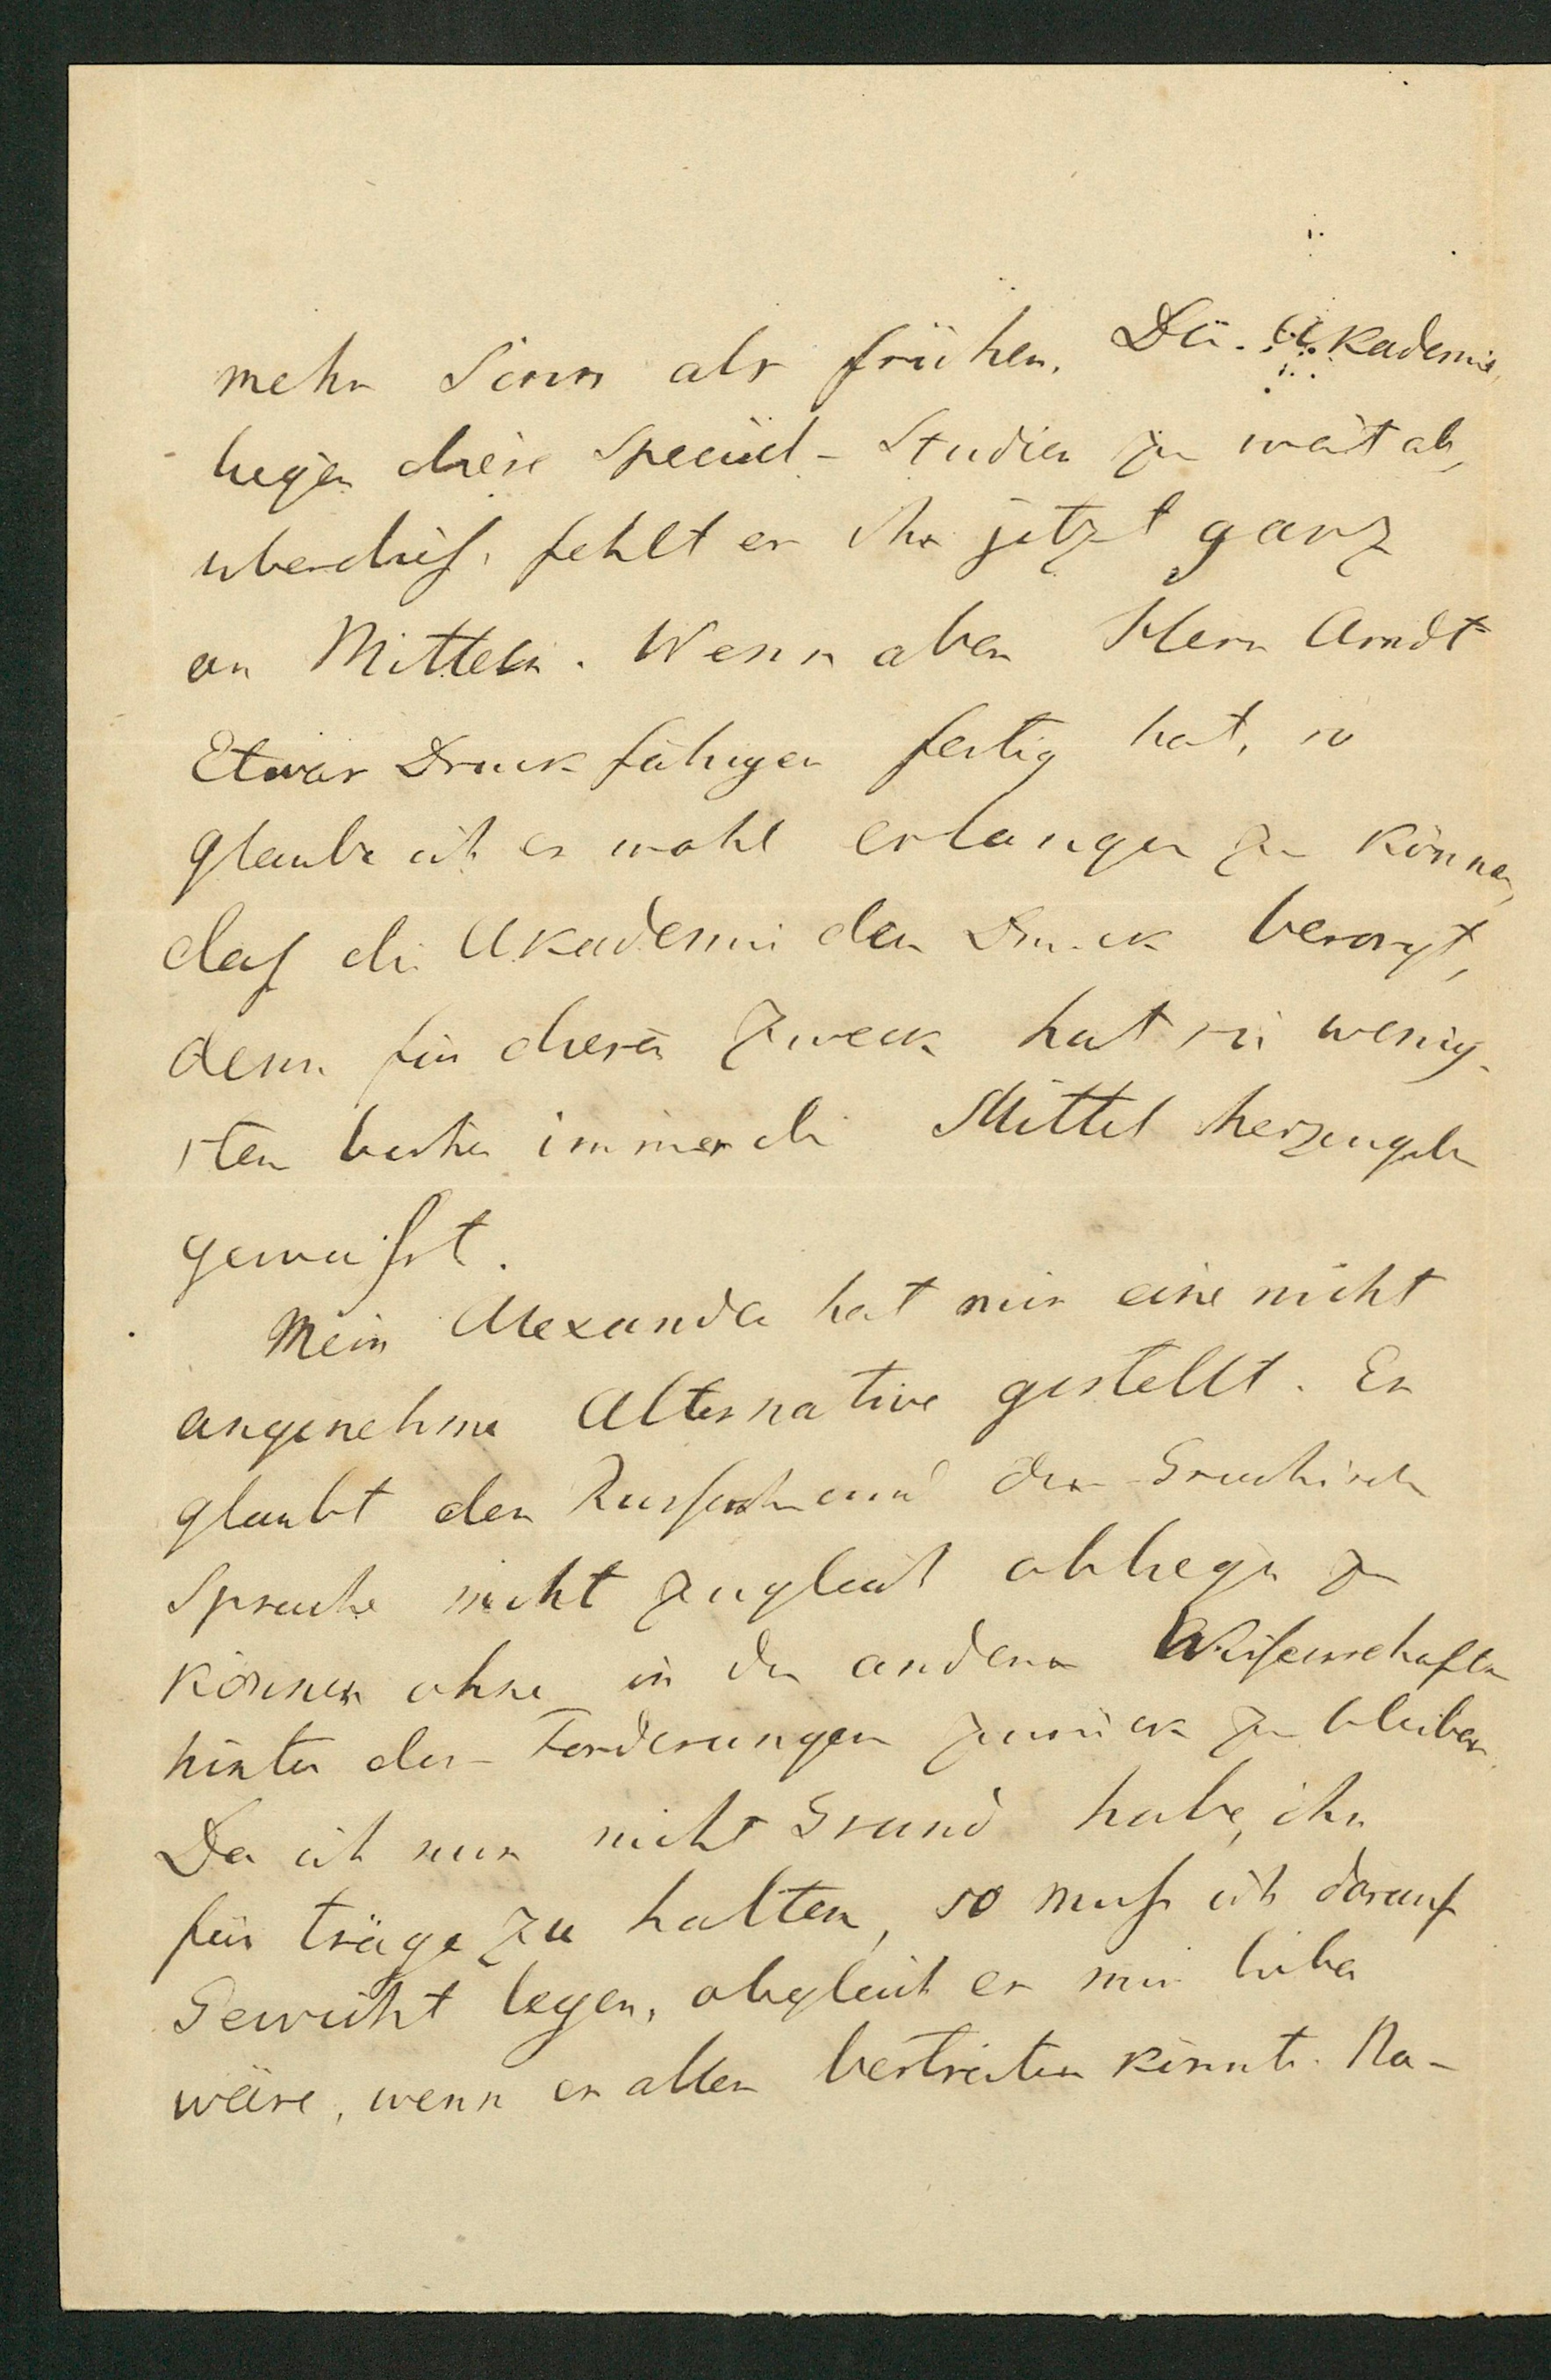 mehr Sinn als früher. Der Akademie
liegen diese Special-Studien zu weit ab,
überdieß fehlt es ihr jetzt ganz
an Mitteln. Wenn aber Herr Arndt
Etwas Druckfähiges fertig hat, so
glaube ich es wohl erlangen zu können,
daß die Akademie den Druck besorgt,
denn für diesen Zweck hat sie wenig-
stens bisher immer die Mittel herzugeben
gewußt.
Mein Alexander hat mir eine nicht
angenehme Alternative gestellt. Er
glaubt der Russischen und der Griechischen
Sprache nicht zugleich obliegen zu
können ohne in den andern Wissenschaften
hinter den Forderungen zurück zu bleiben.
Da ich nun nicht Grund habe, ihn
für träge zu halten, so muß ich darauf
Gewicht legen, obgleich es mir lieber
wäre, wenn er alles bestreiten könnte. Na-